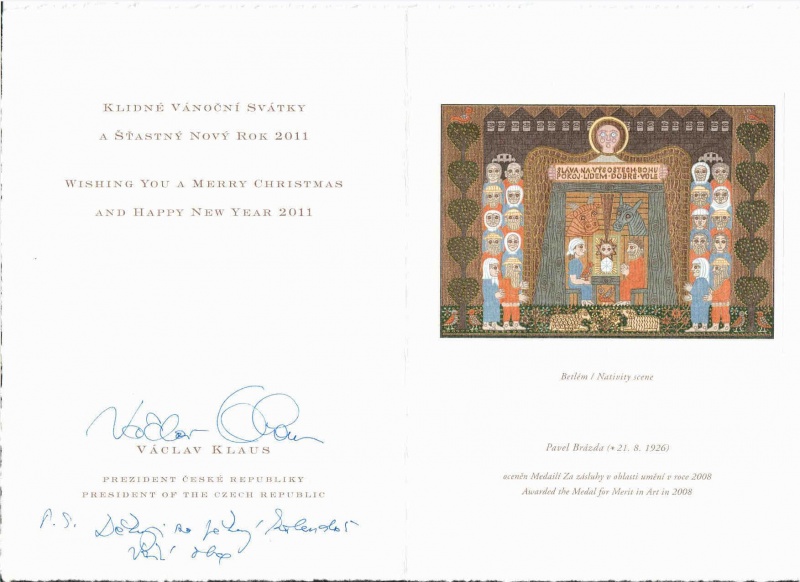 Klidné Vánoční Svátky
a Šťastný Nový Rok 2011
Wishing You a Merry Christmas
and Happy New Year 2011
Václav Klaus
Prezident České republiky
President of the Czech Republic
P.S. Děkuji za pěkný kalendář
SLAVA NA VÝSOSTECH BOHU
POKOJ LIDEM DOBRÉ VŮLE
Betlém / Nativity scene
Pavel Brázda (* 21. 8. 1926)
oceněn Medailí Za zásluhy v oblasti umění v roce 2008
Awarded the Medal for Merit in Art in 2008